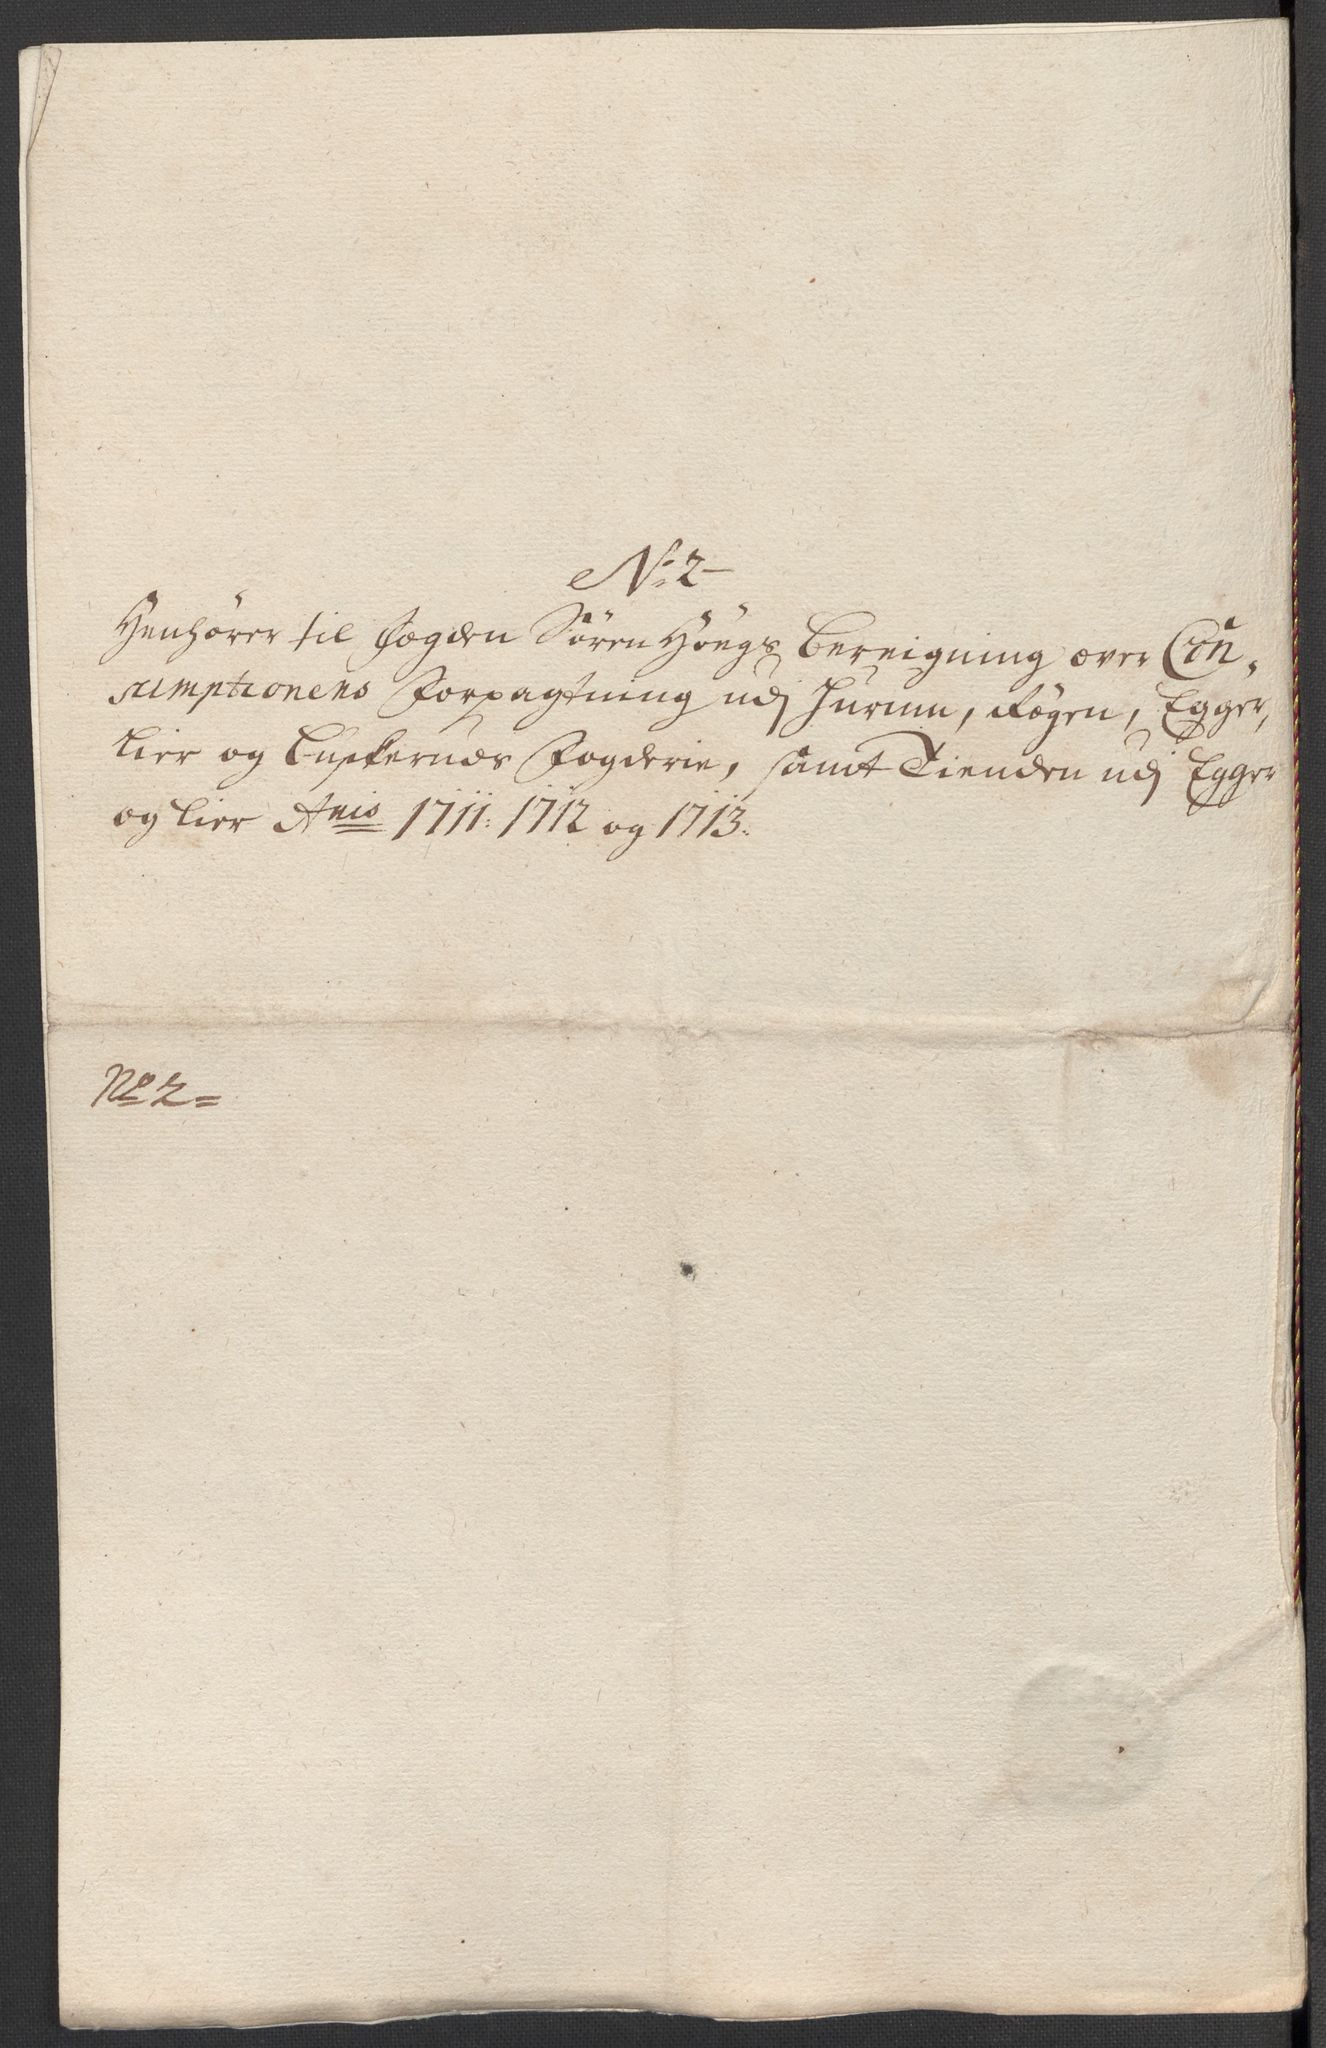 No: 2
Henhörer til fogden Sören Höegs bereigning over Con,
sumptionens Forpagtning udj Hurum, Rögen, Egger,
Lier og Buskeruds Fogderie, samt Tienden udj Egger
og Lier Anis 1711: 1712 og 1713.
No 2=